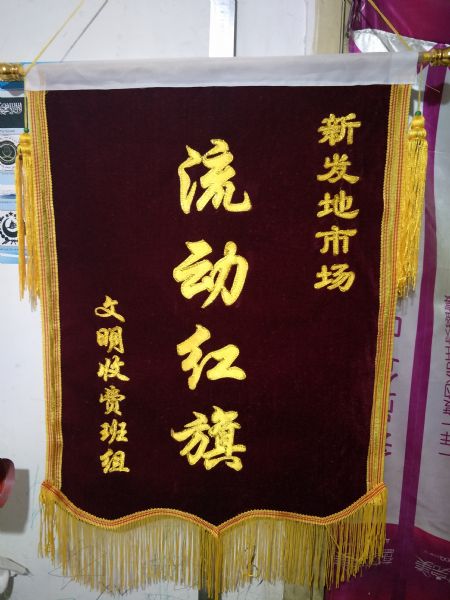 新发地市场
流动红旗
文明收费班组